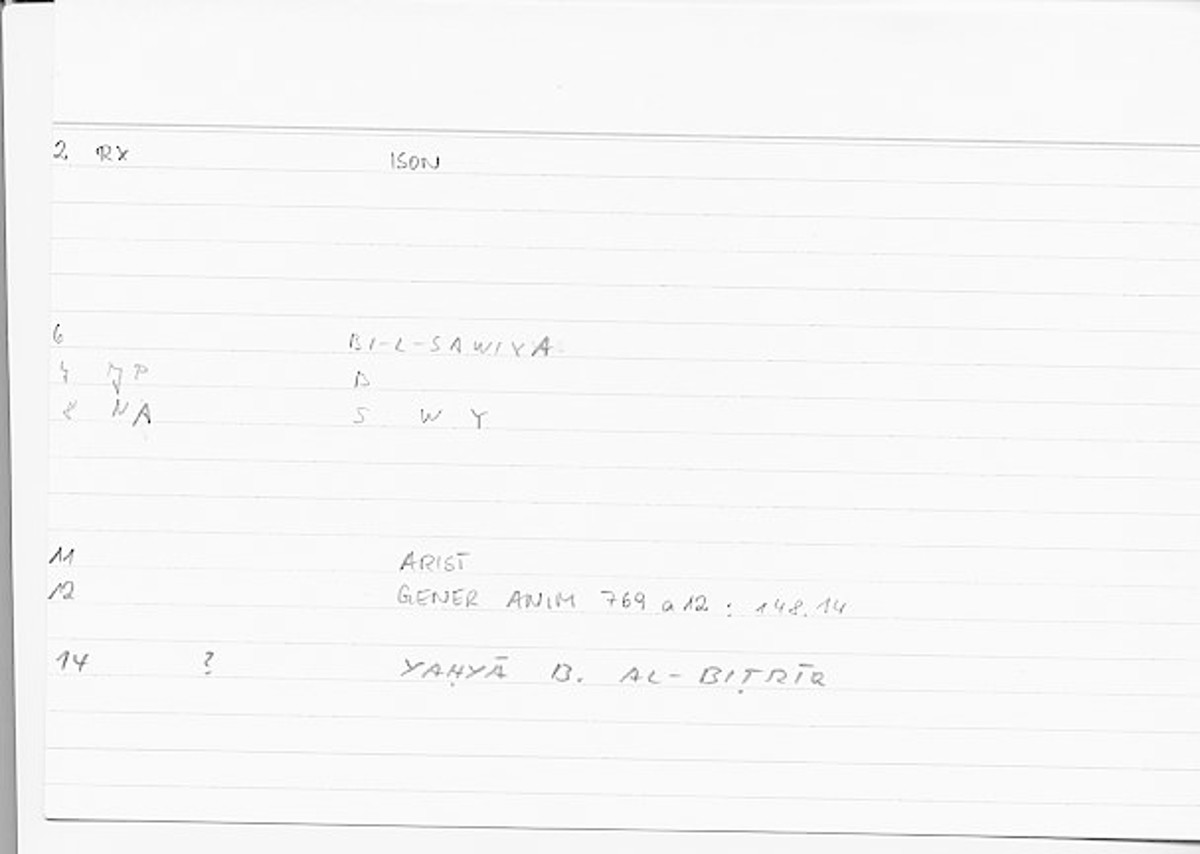 2 RX ISON
6 BI-L-SAWIYA
7 JP B
8 NA S W Y
11 ARIST
12 GENER ANIM 769 a 12 : 148.14
14 ? YAḤYĀ B. AL-BIṬRĪQ